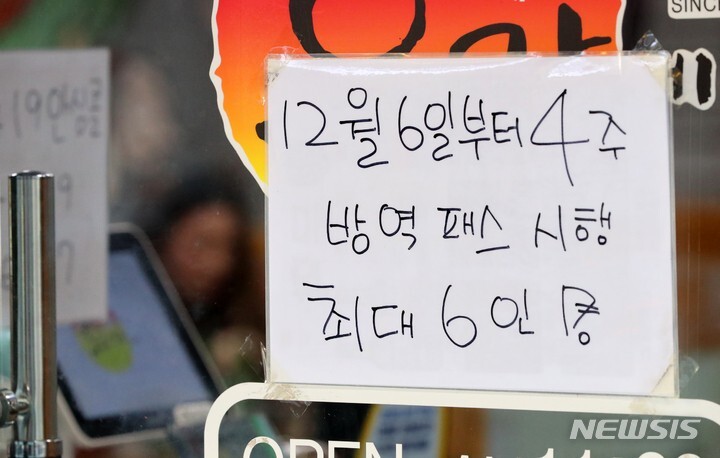 SINCE
12월 6일부터 4주
방역 패스 시행
최대 6인
OPEN
NEWSIS